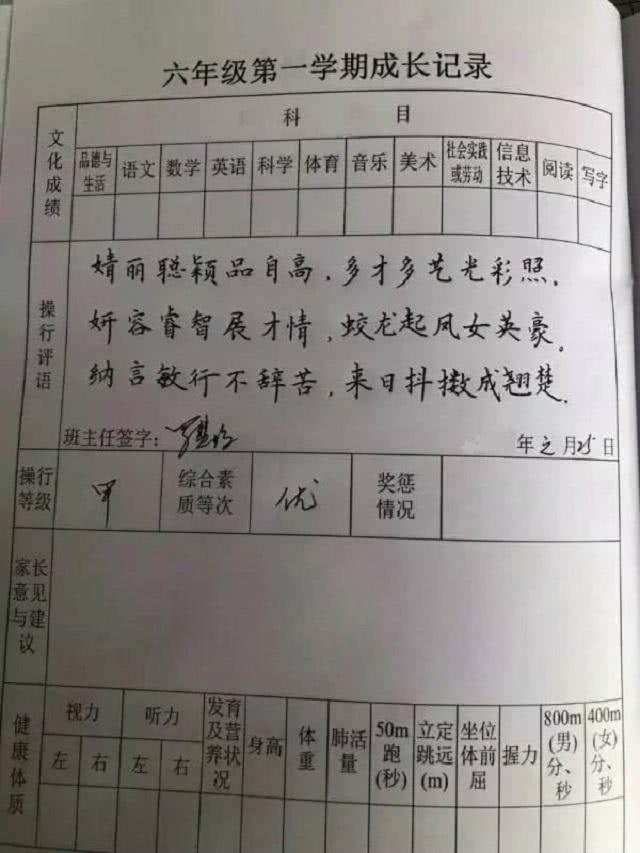 六年级第一学期成长记录
文化成绩
科 目
品德与生活 语文 数学 英语 科学 体育 音乐 美术 社会实践或劳动 信息技术 阅读 写字
操行评语
婧丽聪颖品自高，多才多艺光彩照。
妍容睿智展才情，蛟龙起凤女英豪。
纳言敏行不辞苦，来日抖擞成翘楚。
班主任签字：
年 元 月 25 日
操行等级 甲 综合素质等次 优 奖惩情况
家长意见与建议
健康体质
视力 听力 发育及营养状况 身高 体重 肺活量 50m跑(秒) 立定跳远(m) 坐位体前屈 握力 800m(男)分、秒 400m(女)分、秒
左 右 左 右